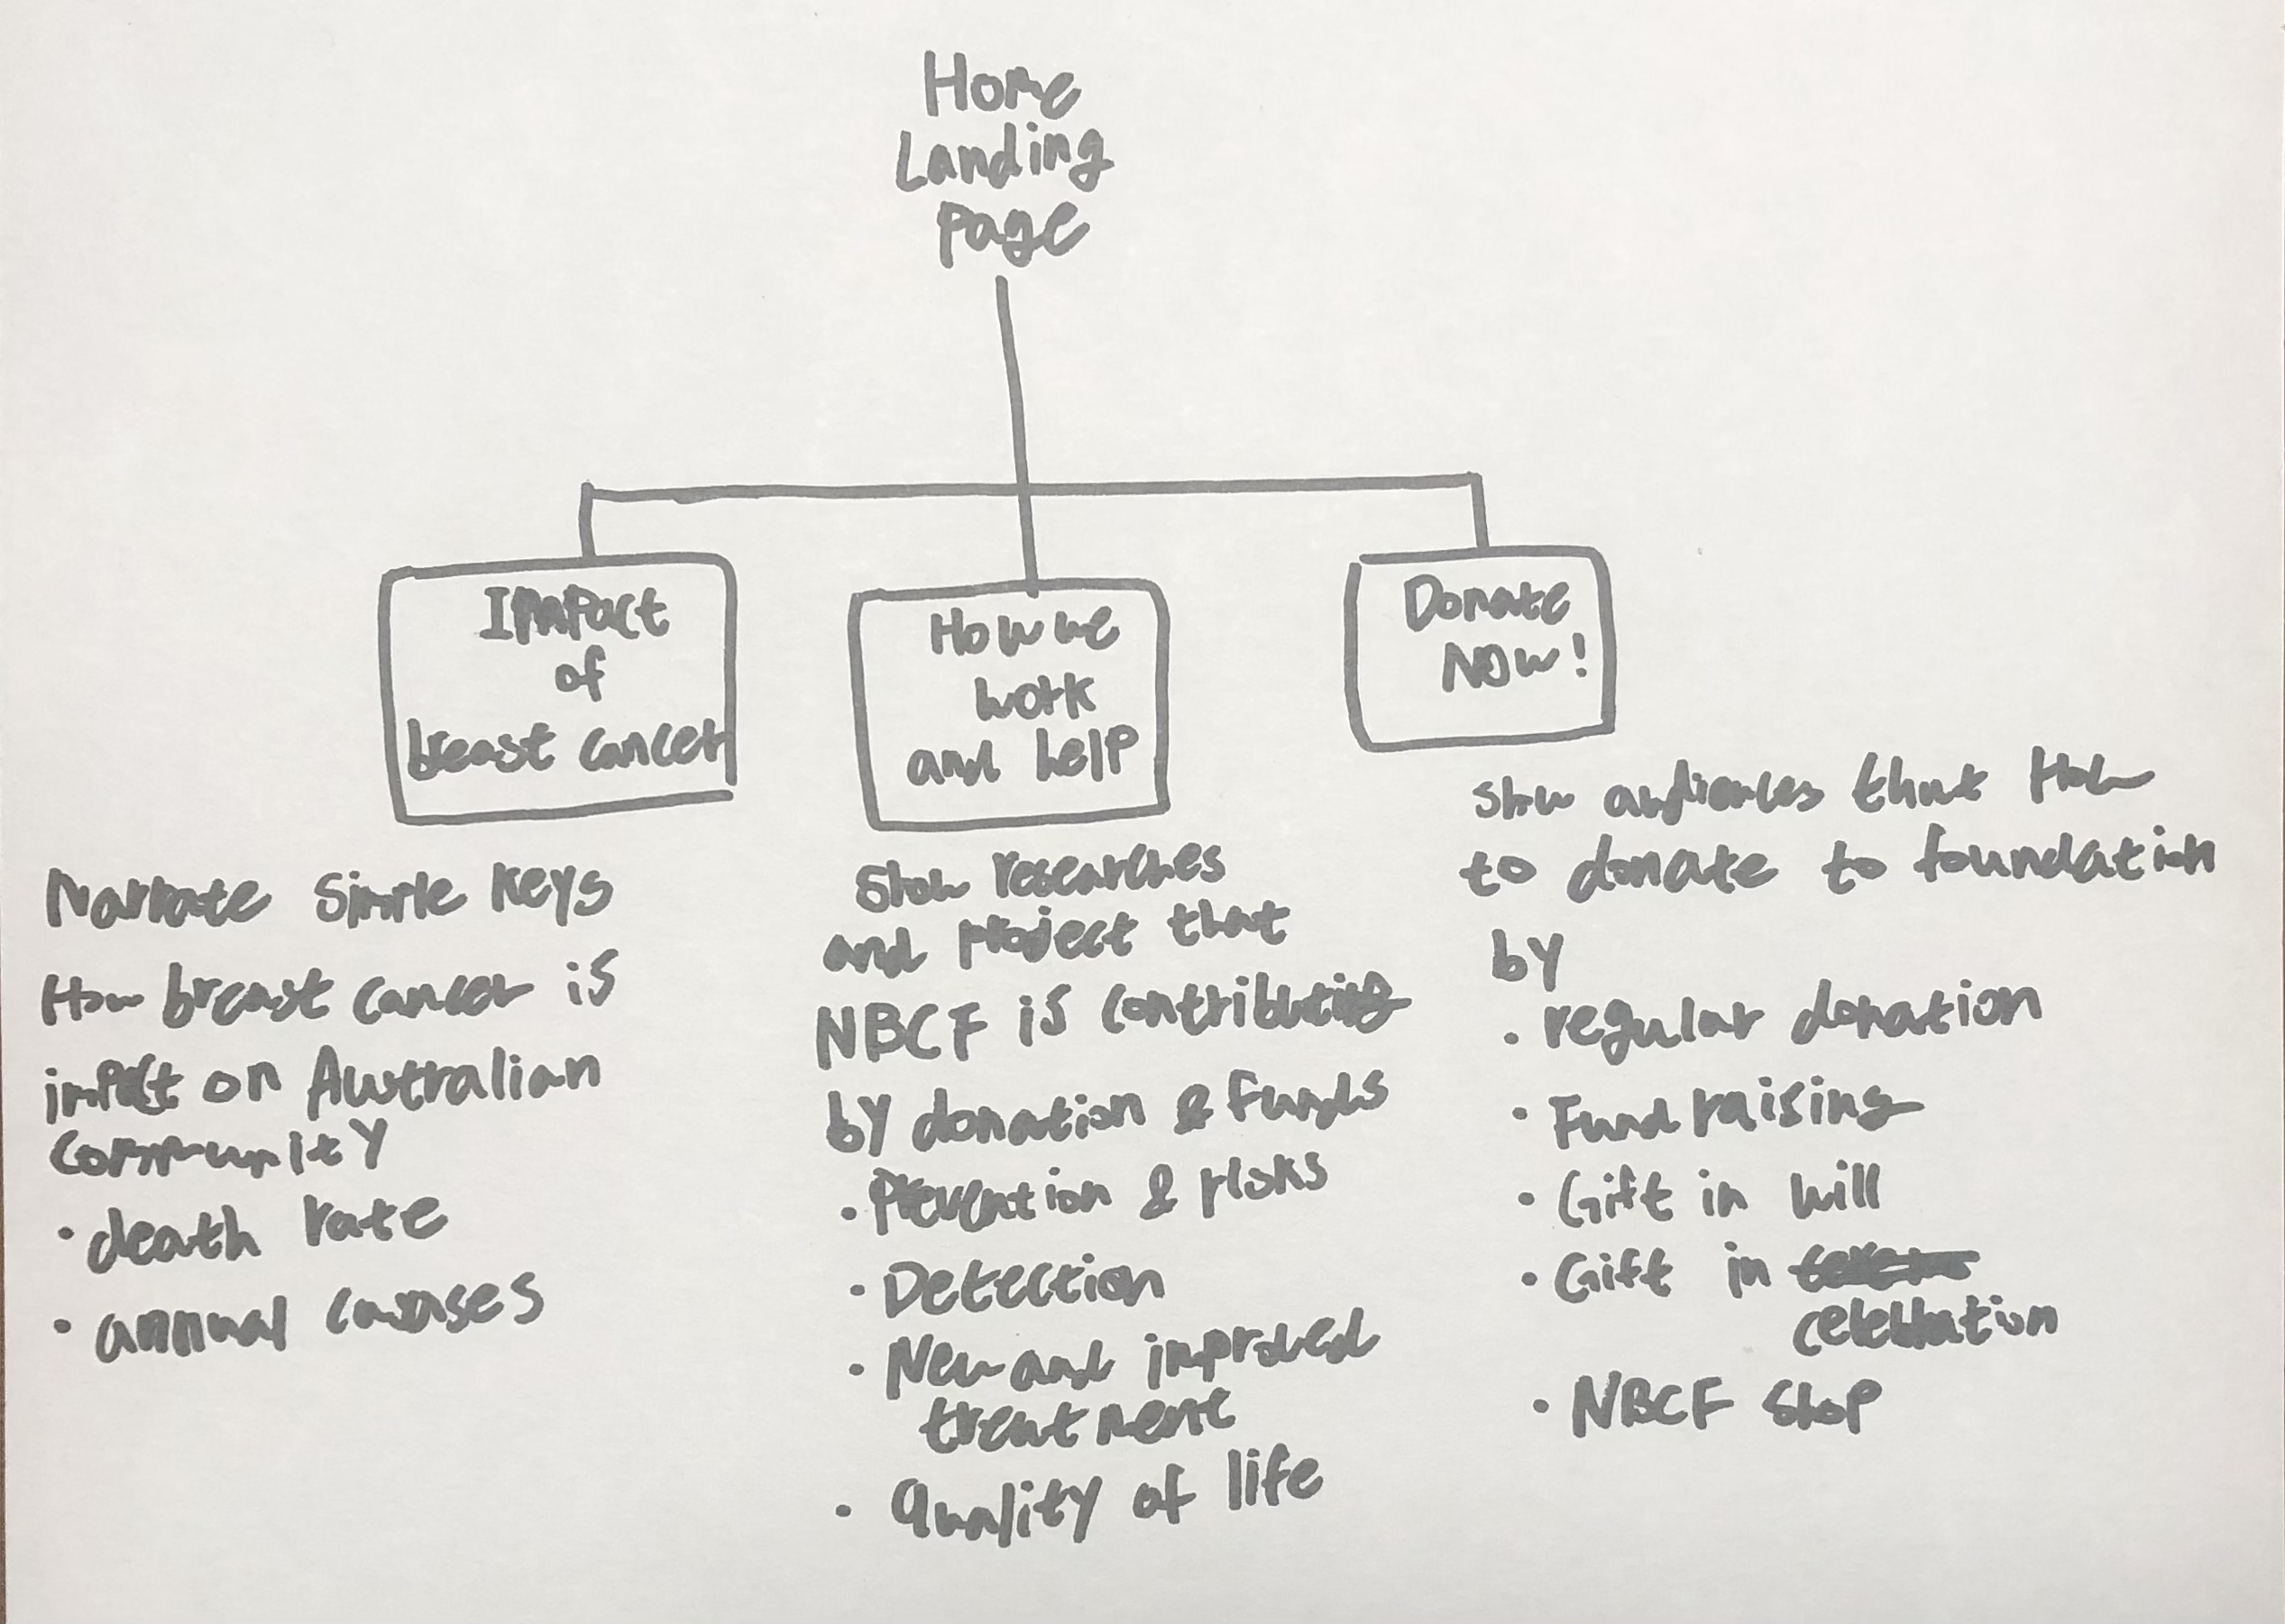 Home
Landing
page
Impact
of
breast cancer
How we
work
and help
Donate
NOW!
Narrate simple keys
How breast cancer is
impact on Australian
community
· death rate
· annual causes
Show researches
and project that
NBCF is contributing
by donation & funds
· Prevention & risks
· Detection
· New and improved
treatment
· Quality of life
Show audiences that How
to donate to foundation
by
· regular donation
· Fund raising
· Gift in will
· Gift in
celebration
· NBCF Shop